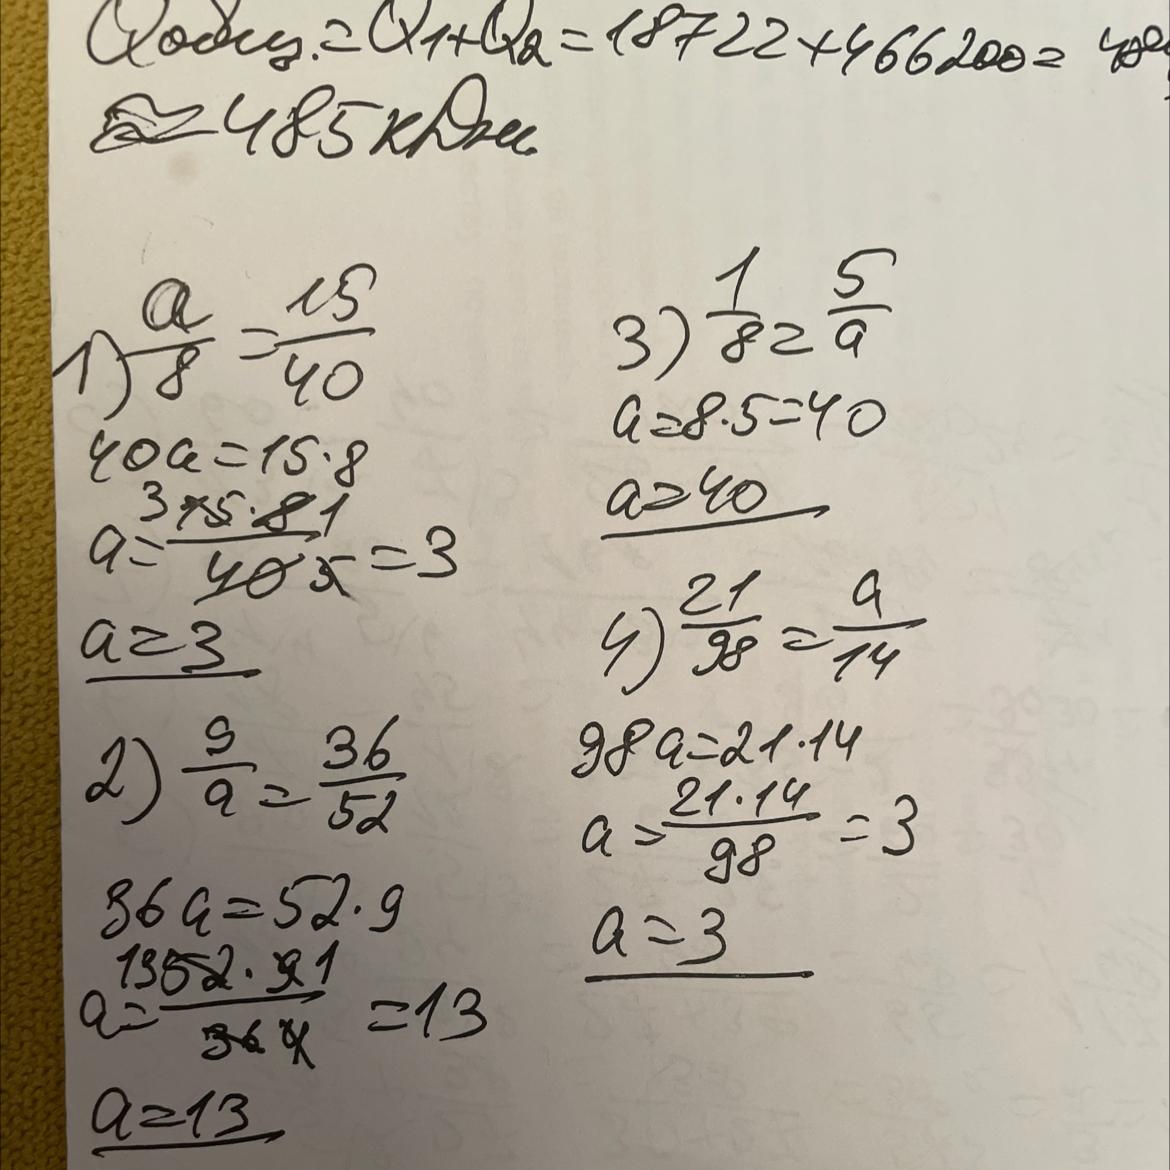 Qобщ.=Q1+Q2=18722+466200=
≈485кДж
1) a/8=15/40
40a=15·8
a=15·8/40=3
a=3
2) 9/a=36/52
36a=52·9
a=52·9/36=13
a=13
3) 1/8=5/a
a=8·5=40
a=40
4) 21/98=a/14
98a=21·14
a=21·14/98=3
a=3